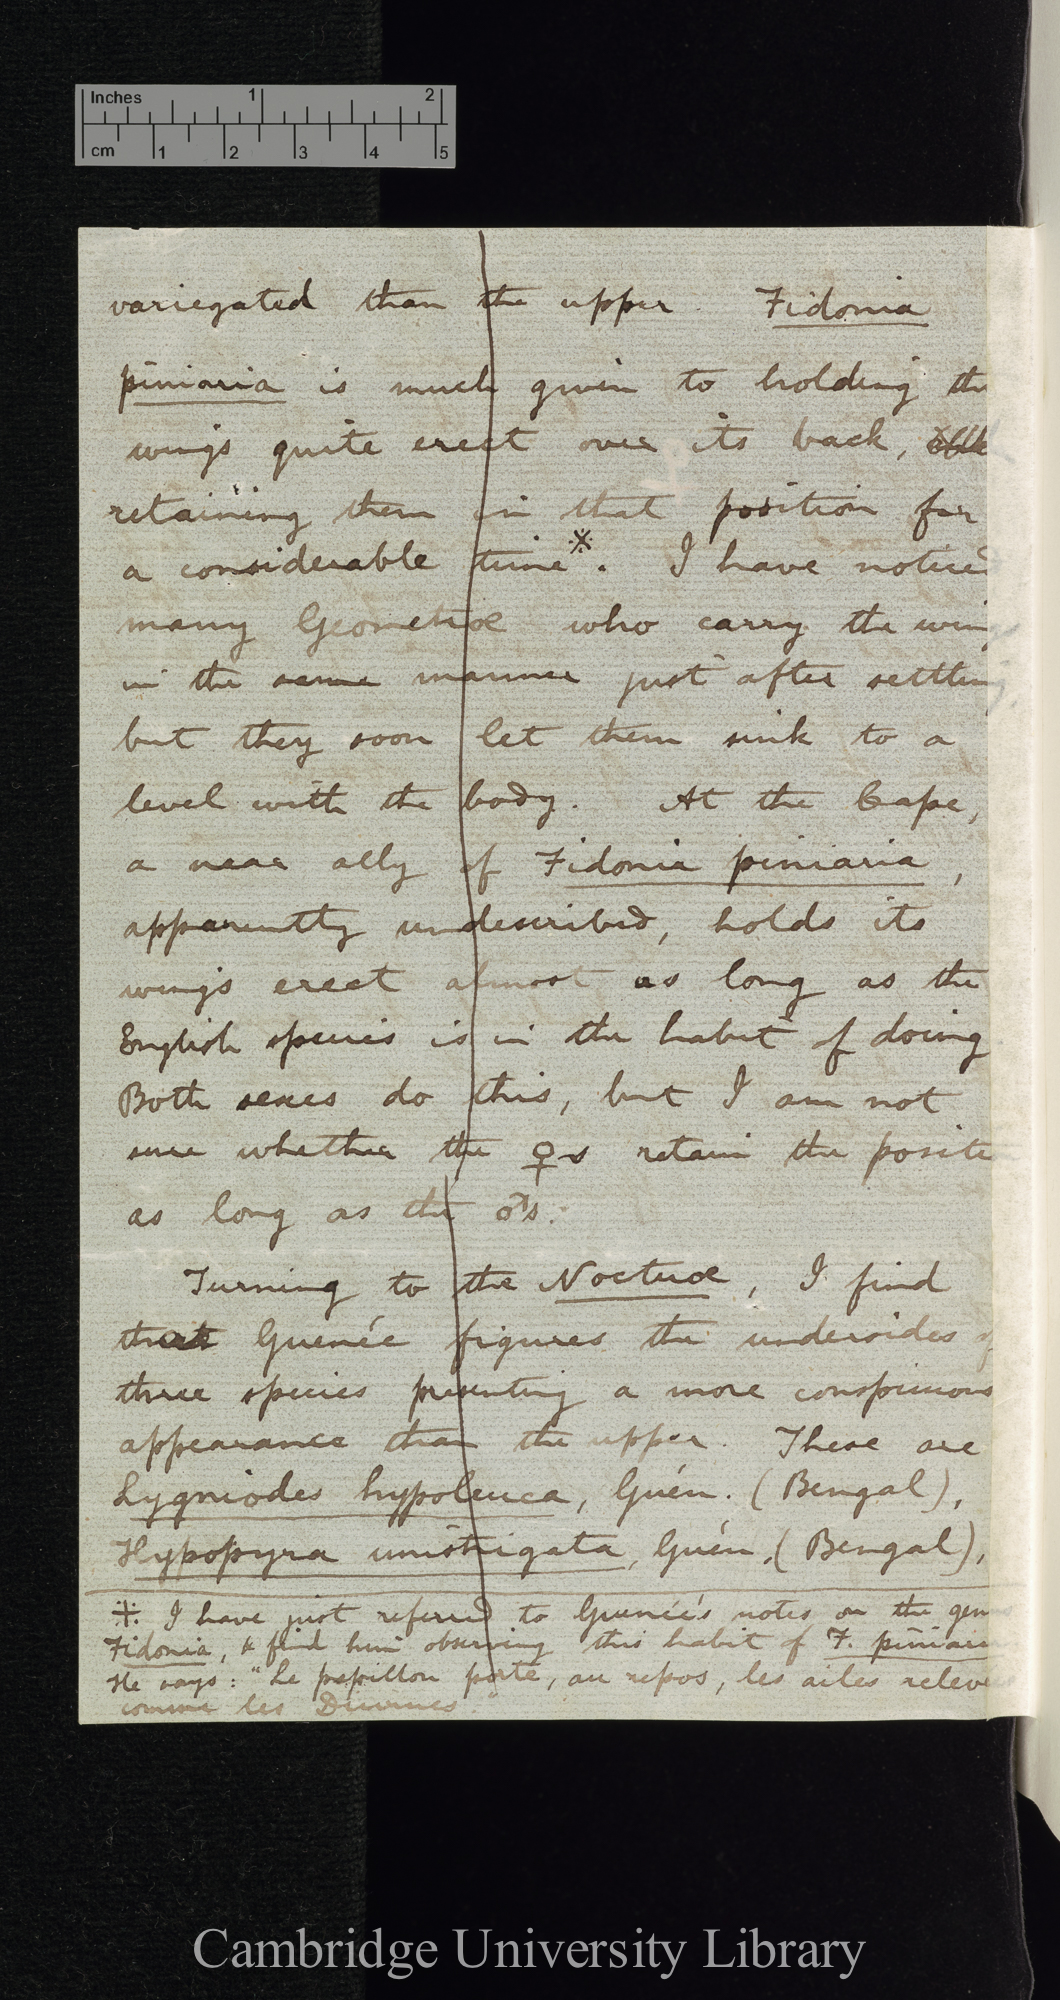 Inches 1 2
cm 1 2 3 4 5
variegated than the upper. Fidonia
piniaria is much given to holding the
wings quite erect over its back,
retaining them in that position for
a considerable time※. I have noticed
many Geometræ who carry the wings
in the same manner just after settling
but they soon let them sink to a
level with the body. At the Cape,
a near ally of Fidonia piniaria,
apparently undescribed, holds its
wings erect almost as long as the
English species is in the habit of doing
Both sexes do this, but I am not
sure whether the ♀s retain the
as long as the ♂s.
Turning to the Noctuæ, I find
that Guenée figures the undersides of
three species presenting a more conspicuous
appearance than the upper. These are
Lygniodes hypoleuca, Guén. (Bengal),
Hypopyra unistrigata, Guén, (Bengal),
※. I have just referred to Guenée's notes on the genus
Fidonia, & find him observing this habit of F. piniaria
He says: "Le papillon porte, au repos, les ailes
comme les Diurnes."
Cambridge University Library